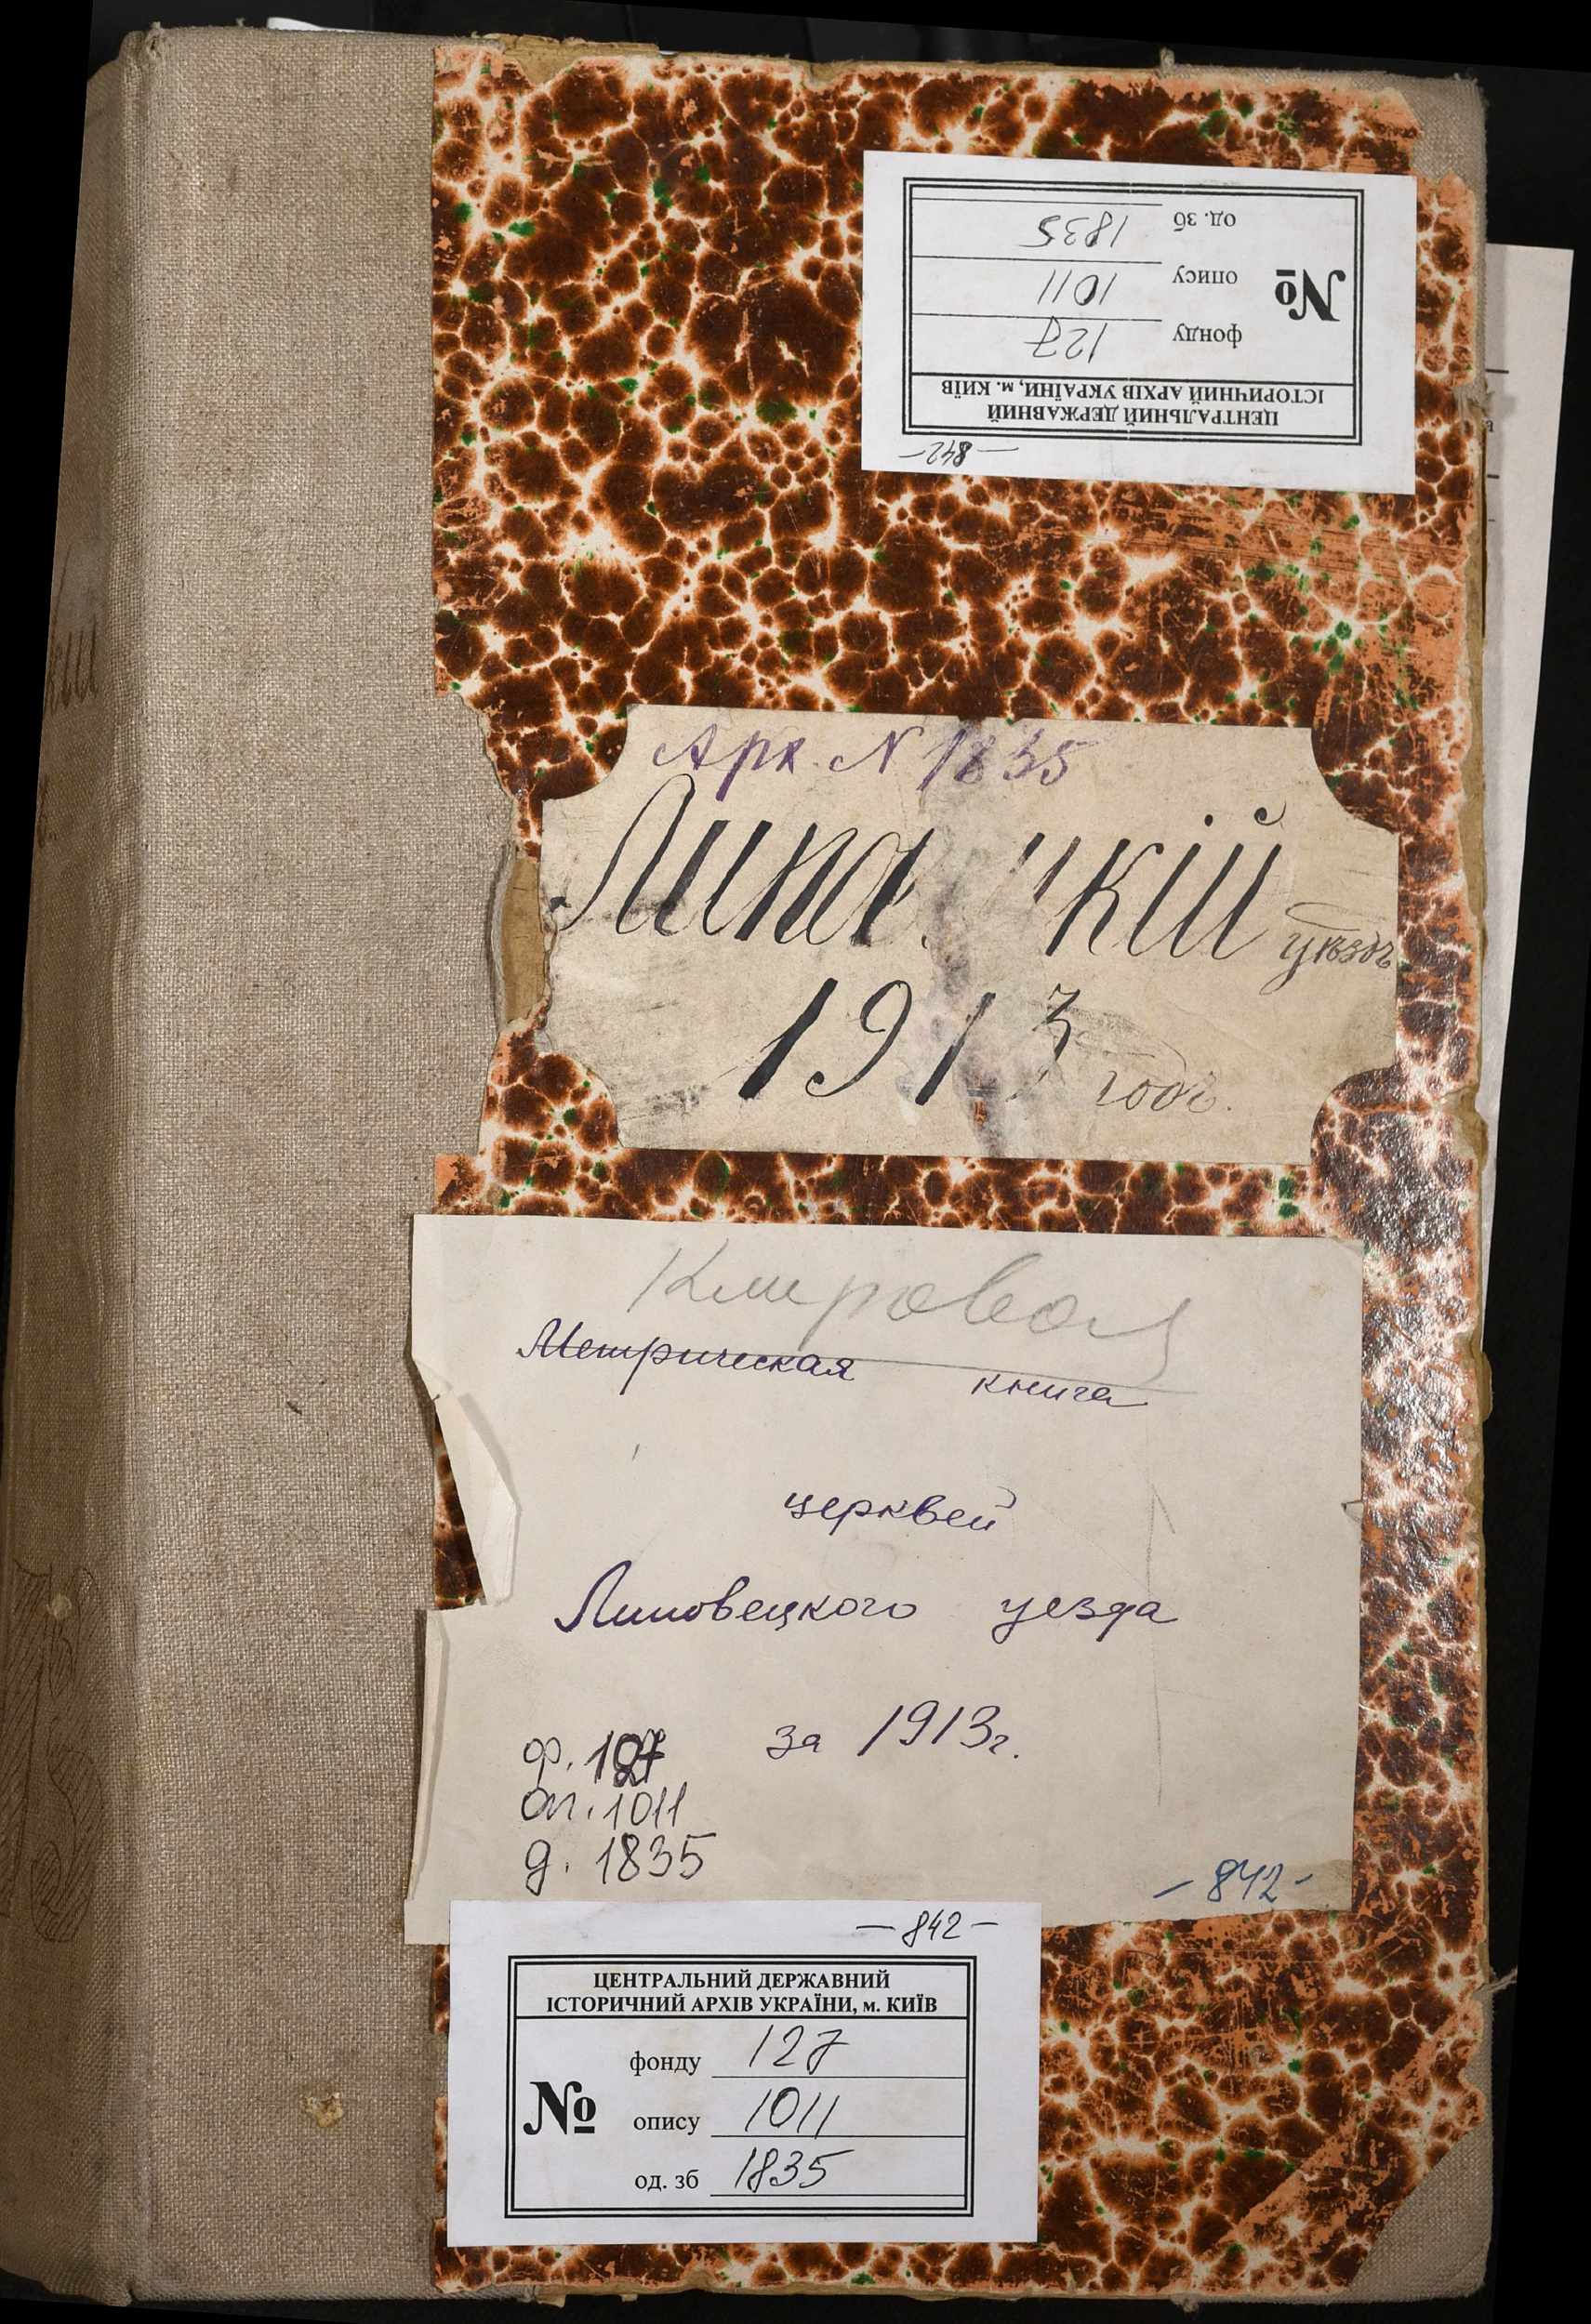 ЦЕНТРАЛЬНИЙ ДЕРЖАВНИЙ
ІСТОРИЧНИЙ АРХІВ УКРАЇНИ, м. КИЇВ
№
фонду 127
опису 1011
од. зб 1835
— 842 —
Арх. N 1835
Липо цкій уѣздъ
1913 годъ.
Клировая
Метрическая книга
церквей
Липовецкого уезда
за 1913г.
ф. 127
оп. 1011
д. 1835
- 842 -
— 842 —
ЦЕНТРАЛЬНИЙ ДЕРЖАВНИЙ
ІСТОРИЧНИЙ АРХІВ УКРАЇНИ, м. КИЇВ
№
фонду 127
опису 1011
од. зб 1835